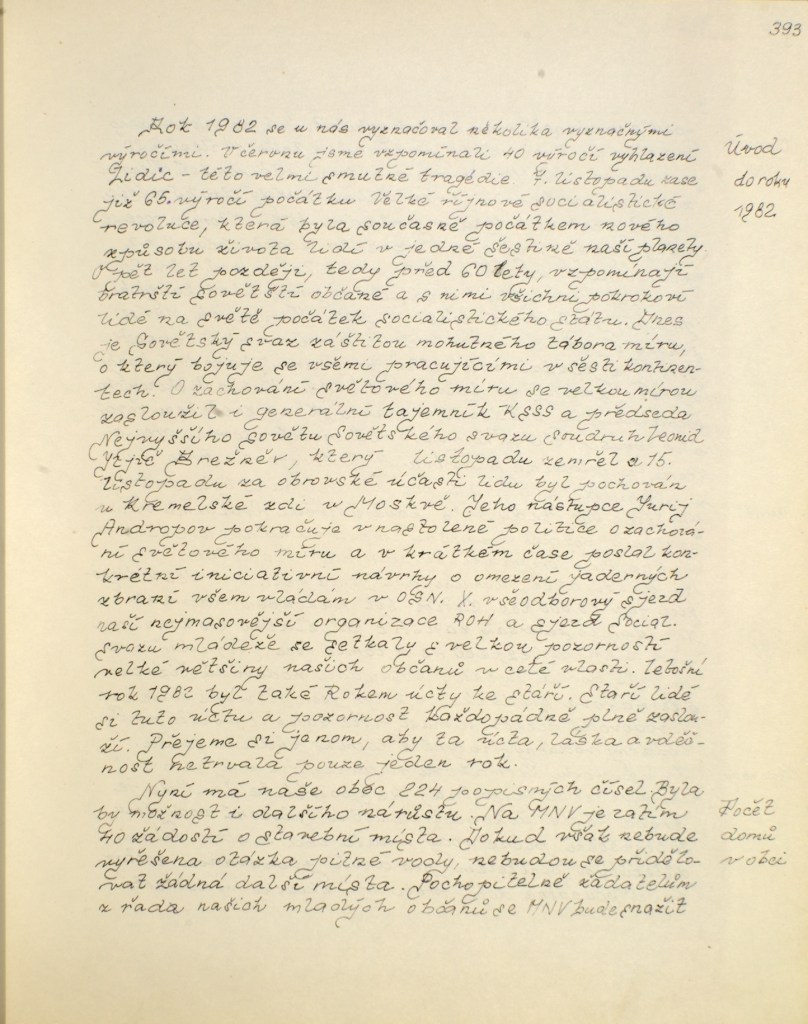 393
Rok 1982 se u nás vyznačoval několika význačnými
výročími. V červnu jsme vzpomínali 40 výročí vyhlazení
Lidic - této velmi smutné tragédie. 7. listopadu zase
již 65. výročí počátku Velké říjnové socialistické
revoluce, která byla současně počátkem nového
způsobu života lidí v jedné šestině naší planety.
O pět let později, tedy před 60 lety, vzpomínají
bratrští sovětští občané a s nimi všichni pokrokoví
lidé na světě počátek socialistického státu. Dnes
je Sovětský svaz záštitou mohutného tábora míru,
o který bojuje se všemi pracujícími v šesti kontinen-
tech. O zachování světového míru se velkou mírou
zasloužil i generální tajemník KSSS a předseda
Nejvyššího sovětu Sovětského svazu soudruh Leonid
Iljič Brežněv, který listopadu zemřel a 15.
listopadu za obrovské účasti lidu byl pochován
u Kremelské zdi v Moskvě. Jeho nástupce Jurij
Andropov pokračuje v nastolené politice o zachová-
ní světového míru a v krátkém čase poslal kon-
krétní iniciativní návrhy o omezení jaderných
zbraní všem vládám v OSN. X. všeodborový sjezd
naší nejmasovější organizace ROH a sjezd Social.
svazu mládeže se setkaly s velkou pozorností
velké většiny našich občanů v celé vlasti. Letošní
rok 1982 byl také Rokem úcty ke stáří. Staří lidé
si tuto úctu a pozornost každopádně plně zaslou-
ží. Přejeme si jenom, aby ta úcta, láska a vděč-
nost netrvala pouze jeden rok.
Nyní má naše obec 224 popisných čísel. Byla
by možnost i dalšího nárůstu. Na MNV je zatím
40 žádostí o stavební místa. Dokud však nebude
vyřešena otázka pitné vody, nebudou se přidělo-
vat žádná další místa. Pochopitelně žadatelům
z řada našich mladých občanů se MNV bude snažit
Úvod
do roku
1982.
Počet
domů
v obci